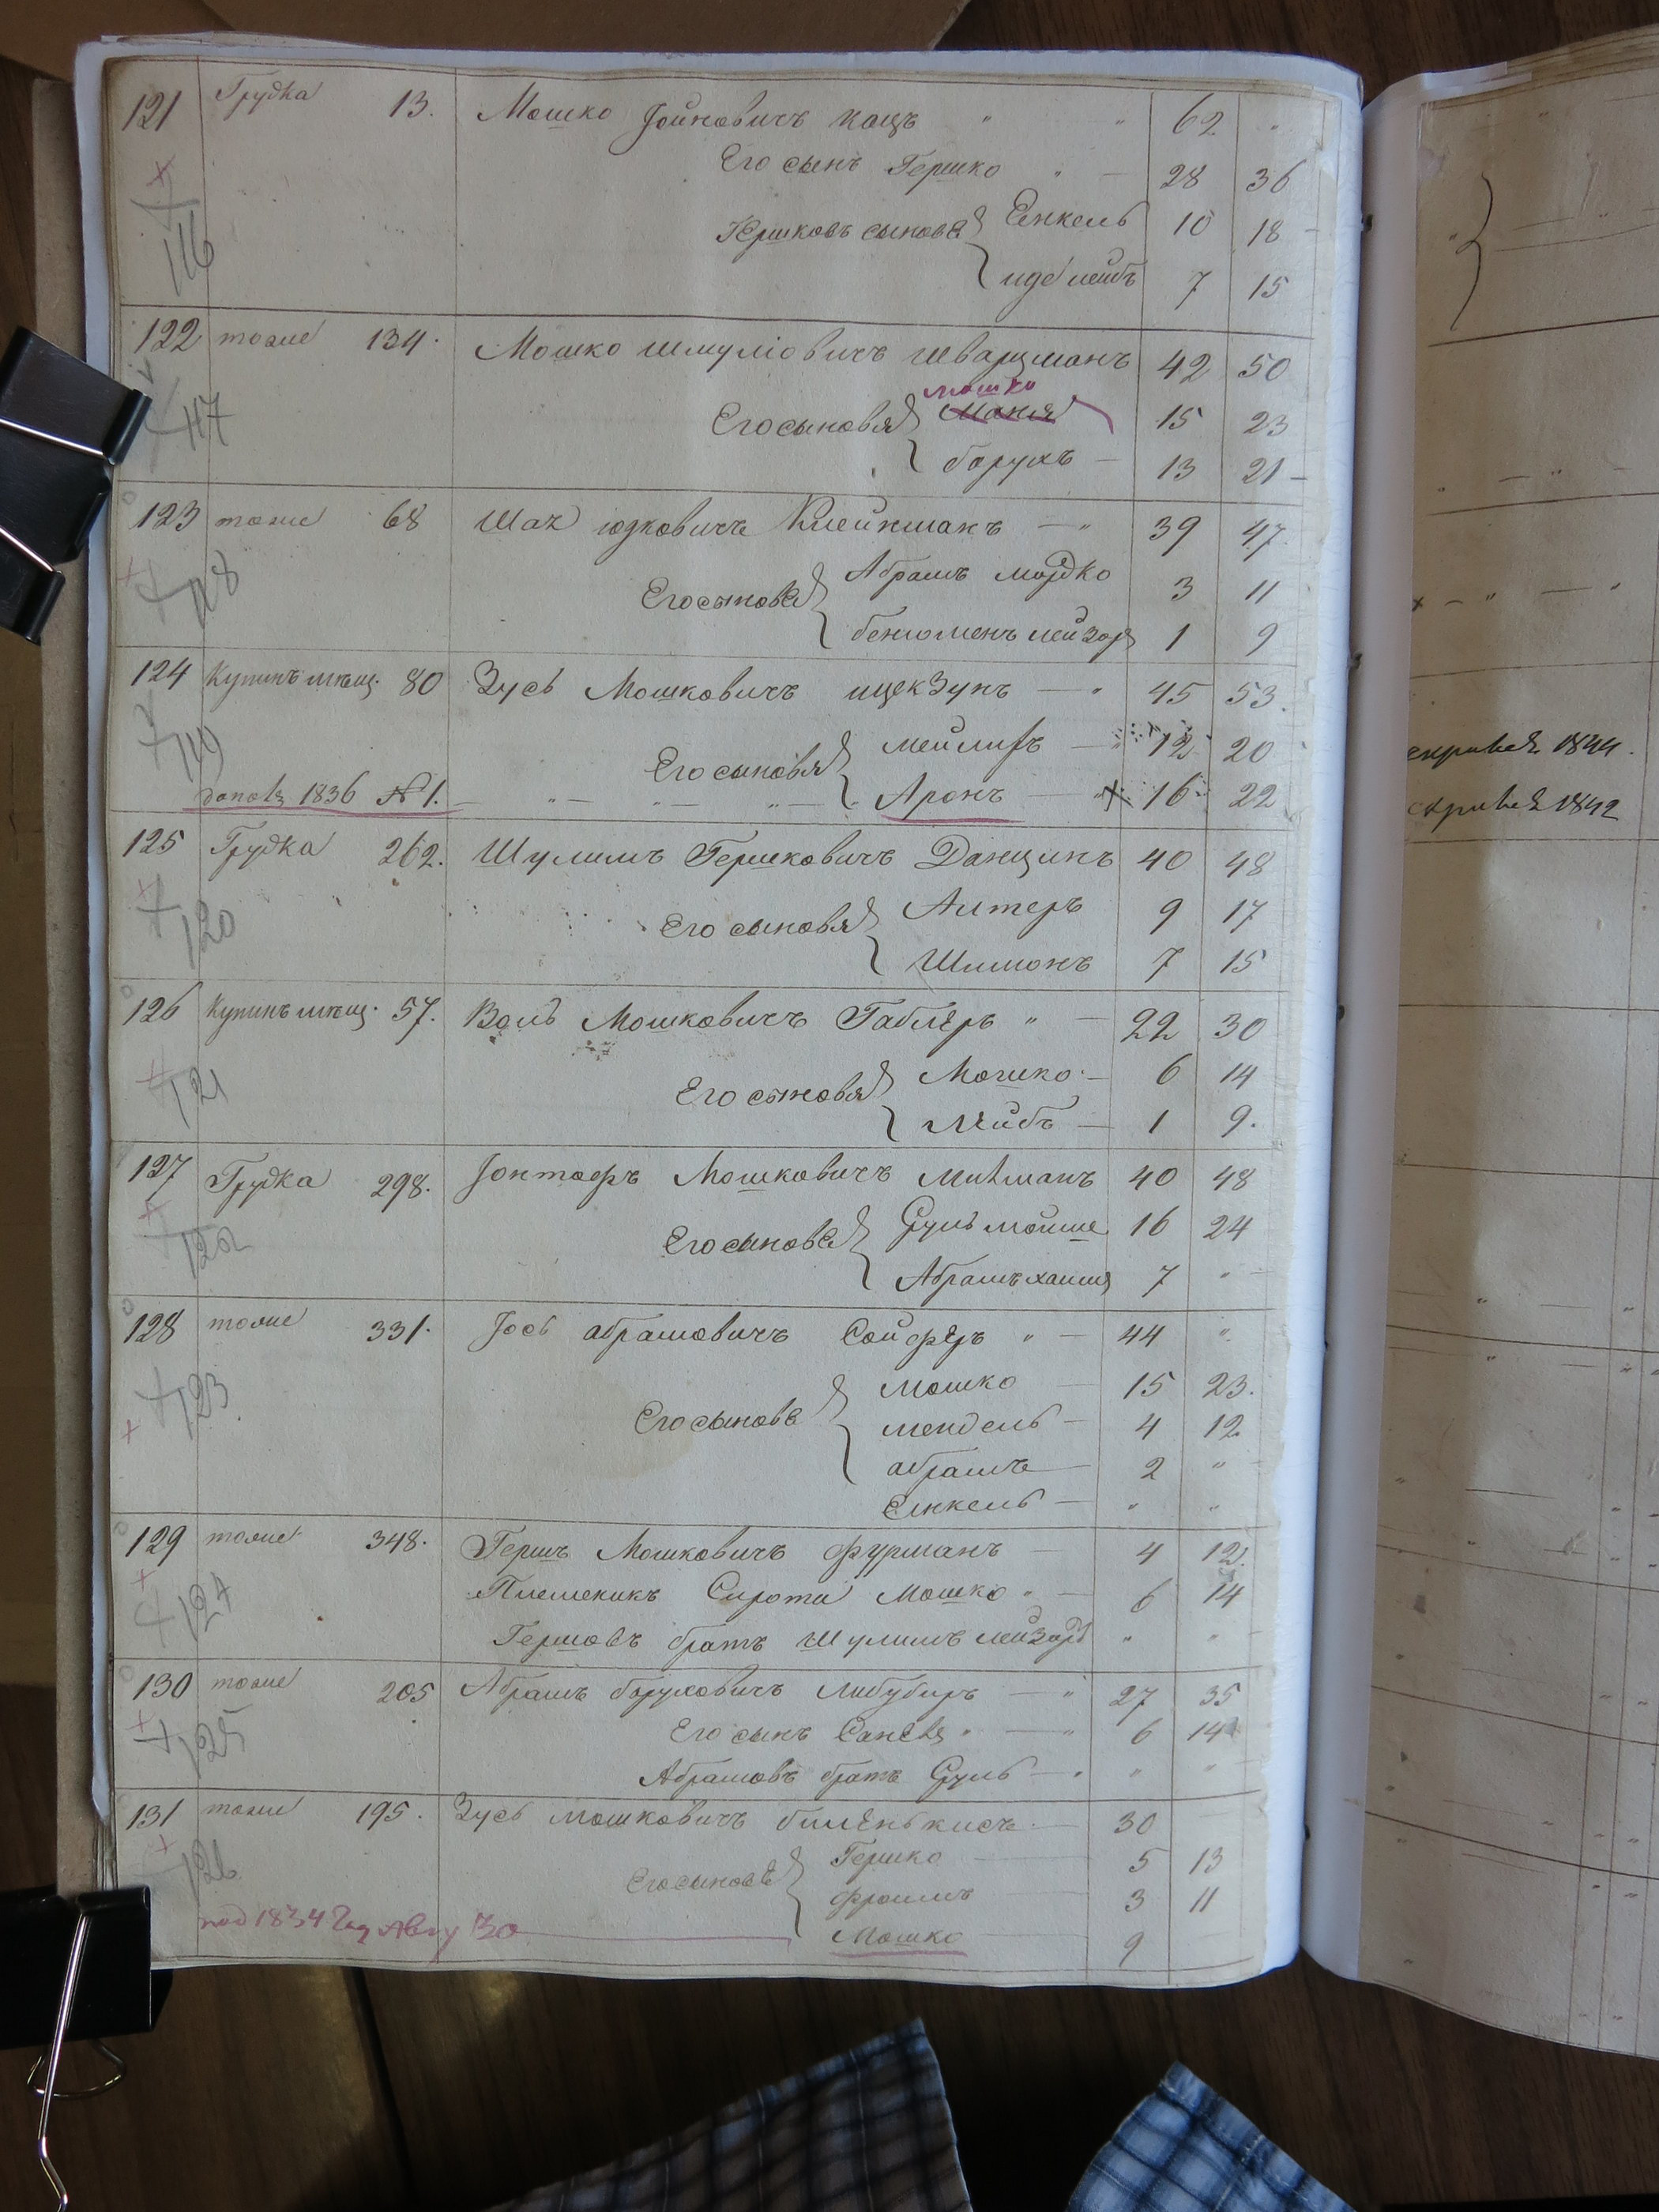 121 Грудка 13. Мошко Іойновичъ Кацъ " " 62 "
Его сынъ Гершко " — 28 36
Гершковъ сыновья { Еенкель 10 18 -
116
идс лейбъ 7 15
122 тоже 134. Мошко Шмуліовичъ Шварцманъ 42 50
Мошко
Его сыновья { 15 23
117
борухъ — 13 21 -
123 тоже 68 Шая юдковичъ Клейнманъ — " 39 47.
Его сыновья { Абрамъ мордко 3 11
118
бенюменъ лейзоръ 1 9
124 Купинъ мѣщ. 80 Зусь Мошковичъ ицекзунъ — " 45 53.
Его сыновья { мейлихъ — " 12 20
119
1836 № 1. " — " — " — Аронъ — " 16 22
1844.
1842
125 Грудка 262. Шулимъ Гершковичъ Данцинъ 40 48
Его сыновья { Алтеръ 9 17
120
Шлмонъ 7 15
126 Купинъ мѣщ. 57. Воль Мошковичъ Габлеръ " — 22 30
Его сыновья { Мошко — 6 14
121
Лейбъ — 1 9.
127 Грудка 298. Іонтофъ Мошковичъ Митманъ 40 48
Его сыновья { Сруль мойше 16 24
122
Абрамъ хаимъ 7 " —
128 тоже 331. Іось абрамовичъ Сойферъ " — 44 "
Его сыновья { Мошко — 15 23.
123
мендель — 4 12
абрамъ — 2 "
Енкель — " "
129 тоже 348. Гершъ Мошковичъ фурманъ — 4 12.
Племеникъ Сирота Мошко " — 6 14
124
Гершовъ братъ Шулимъ лейзоръ " " —
130 тоже 205 Абрамъ боруховичъ Либуберъ — " 27 35
Его сынъ " — " 6 14
125
Абрамовъ братъ Сруль — . " "
131 тоже 195. Зусь Мошковичъ биленькисъ. — 30
Его сыновья { Гершко — 5 13
126
фроимъ — 3 11
под 1834 Год Авгу 30 — Мошко — 9